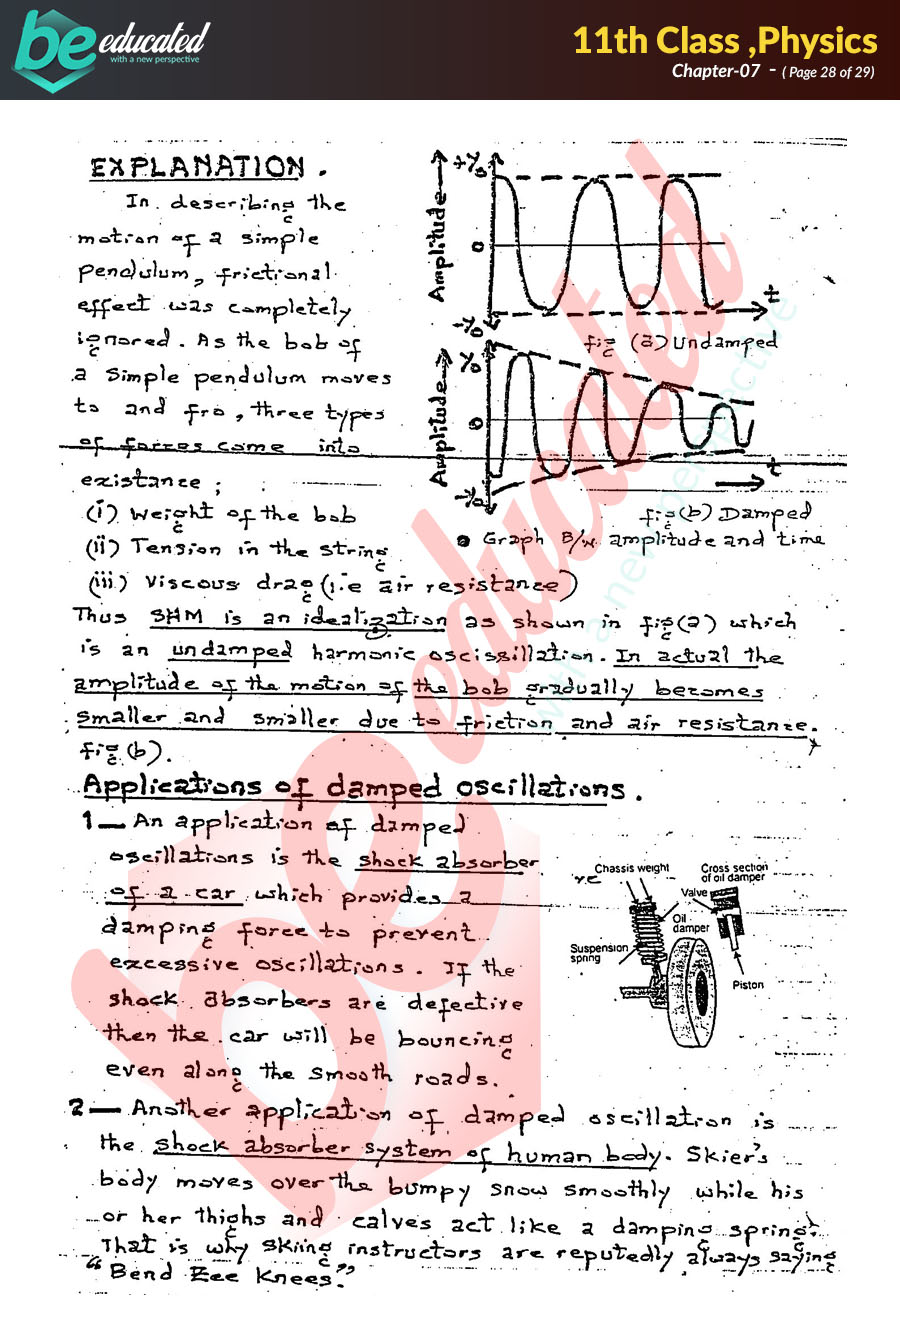 be educated
with a new perspective
11th Class ,Physics
Chapter-07 - ( Page 28 of 29)
EXPLANATION .
In describing the
motion of a simple
pendulum, frictional
effect was completely
ignored. As the bob of
a simple pendulum moves
to and fro, three types
of forces come into
existance;
(i) Weight of the bob
(ii) Tension in the string
(iii) Viscous drag (i.e air resistance)
Amplitude
+Y₀
0
-Y₀
t
fig (a) Undamped
Amplitude
Y₀
0
-Y₀
t
fig (b) Damped
Graph B/w amplitude and time
Thus SHM is an idealization as shown in fig(a) which
is an undamped harmonic oscissillation. In actual the
amplitude of the motion of the bob gradually becomes
smaller and smaller due to friction and air resistance.
fig (b).
Applications of damped oscillations.
1— An application of damped
oscillations is the shock absorber
of a car which provides a
damping force to prevent
excessive oscillations. If the
shock absorbers are defective
then the car will be bouncing
even along the smooth roads.
Chassis weight
Cross section
of oil damper
Valve
Oil
damper
Suspension
spring
Piston
2— Another application of damped oscillation is
the shock absorber system of human body. Skier's
body moves over the bumpy snow smoothly while his
or her thighs and calves act like a damping spring.
That is why skiing instructors are reputedly always saying
"Bend Zee Knees."
be educated
with a new perspective